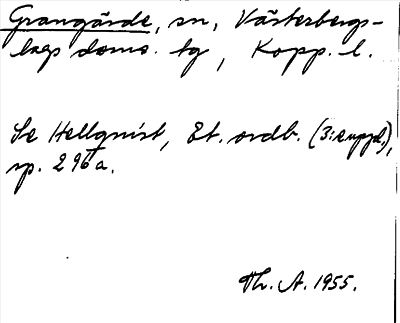 Grangärde, sn, Västerbergs-
lags doms. tg, Kopp. l.
Se Hellquist, Et. ordb. (3:e uppl.),
sp. 296 a.
Th. A. 1955.